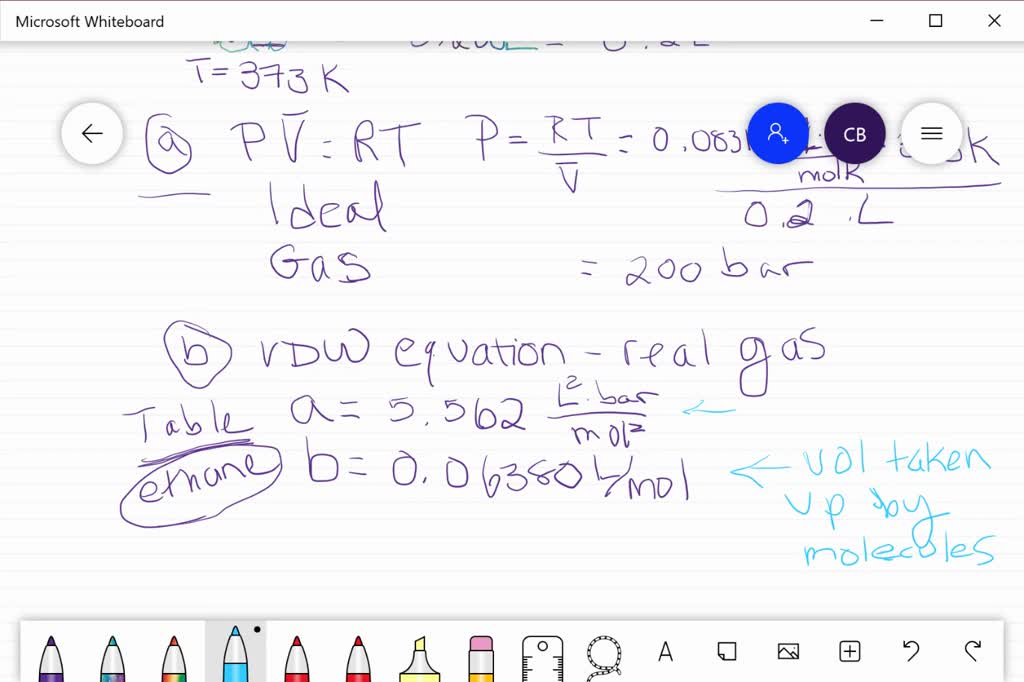 Microsoft Whiteboard
T= 373 K
a P V̄ = RT P = RT / V̄ = 0.083 molK K
0.2 . L
Ideal
Gas = 200 bar
b VDW equation - real gas
Table a = 5.562 L² · bar / mol² ←
ethane b = 0.06380 L/mol ← vol taken
up by
molecules
CB
A